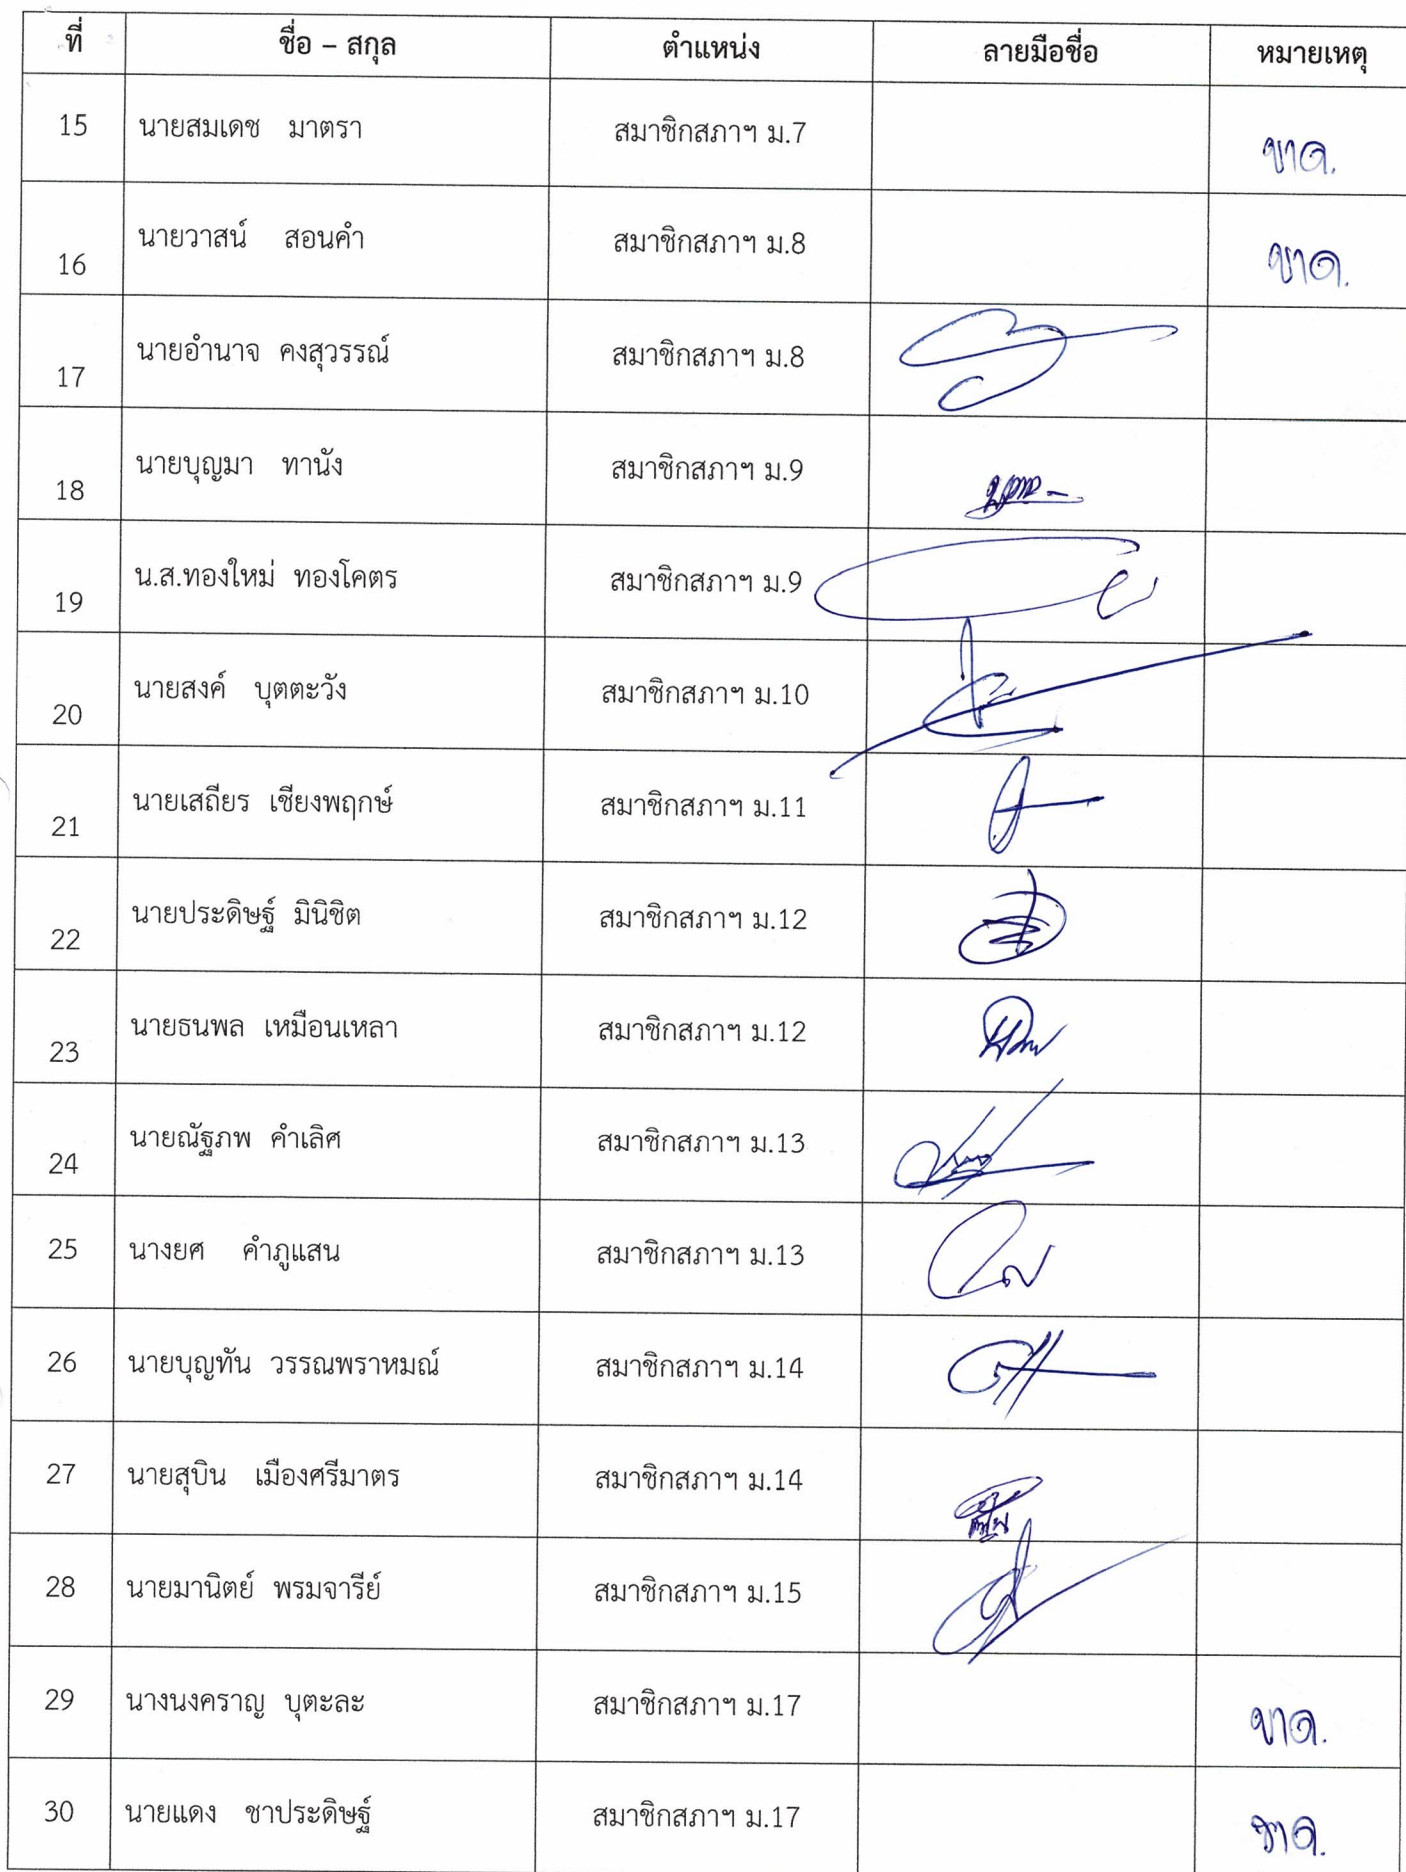 ที่ ชื่อ – สกุล ตำแหน่ง ลายมือชื่อ หมายเหตุ
15 นายสมเดช มาตรา สมาชิกสภาฯ ม.7 ขาด.
16 นายวาสน์ สอนคำ สมาชิกสภาฯ ม.8 ขาด.
17 นายอำนาจ คงสุวรรณ์ สมาชิกสภาฯ ม.8
18 นายบุญมา ทานัง สมาชิกสภาฯ ม.9
19 น.ส.ทองใหม่ ทองโคตร สมาชิกสภาฯ ม.9
20 นายสงค์ บุตตะวัง สมาชิกสภาฯ ม.10
21 นายเสถียร เชียงพฤกษ์ สมาชิกสภาฯ ม.11
22 นายประดิษฐ์ มินิชิต สมาชิกสภาฯ ม.12
23 นายธนพล เหมือนเหลา สมาชิกสภาฯ ม.12
24 นายณัฐภพ คำเลิศ สมาชิกสภาฯ ม.13
25 นางยศ คำภูแสน สมาชิกสภาฯ ม.13
26 นายบุญทัน วรรณพราหมณ์ สมาชิกสภาฯ ม.14
27 นายสุบิน เมืองศรีมาตร สมาชิกสภาฯ ม.14
28 นายมานิตย์ พรมจารีย์ สมาชิกสภาฯ ม.15
29 นางนงคราญ บุตะละ สมาชิกสภาฯ ม.17 ขาด.
30 นายแดง ชาประดิษฐ์ สมาชิกสภาฯ ม.17 ขาด.